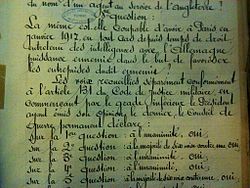 du nom d'un agent au service de l'Angleterre ?
8e question :
La même est-elle coupable d'avoir à Paris en
janvier 1917, en tout cas depuis temps de droit
entretenu des intelligences avec l'Allemagne
puissance ennemie dans le but de favoriser
les entreprises dudit ennemi ?
Les voix recueillies séparément conformément
à l'article 131 du Code de Justice militaire en
commençant par le grade inférieur le Président
ayant émis son opinion le dernier, le Conseil de
Guerre permanent déclare,
Sur la 1ère question : à l'unanimité, oui,
sur la 2e question : à la majorité de six voix contre une oui
sur la 3e question : à l'unanimité, oui,
sur la 4e question : à l'unanimité, oui,
sur la 5e question : à la majorité de six voix contre une, oui